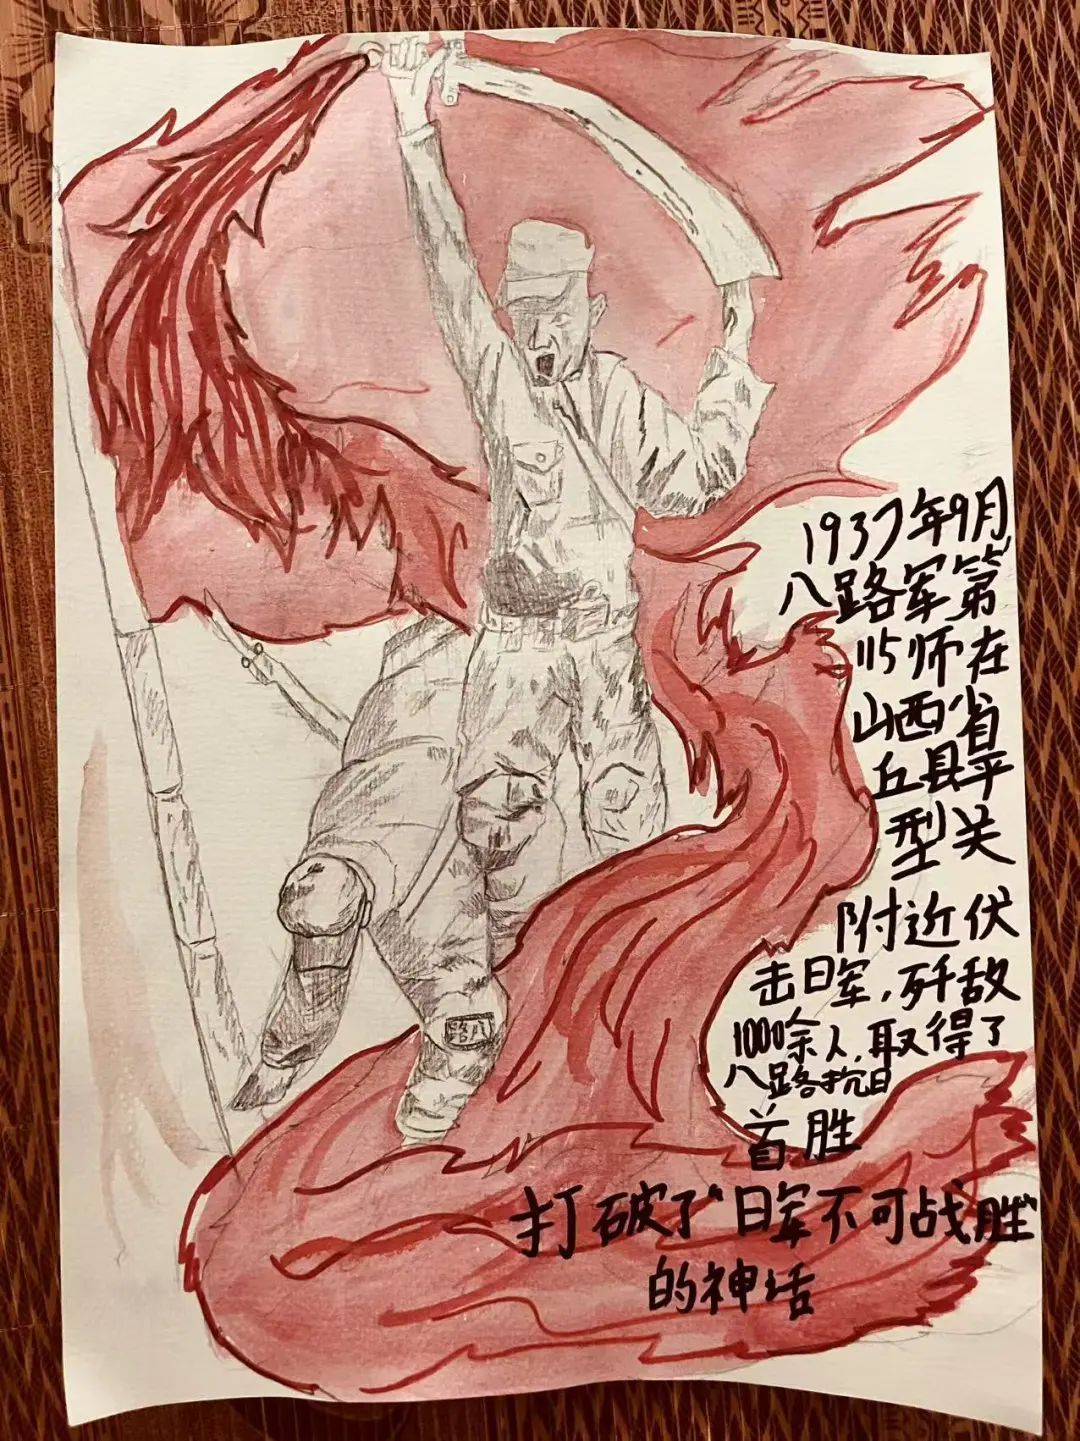 1937年9月
八路军第
115师在
山西省
丘县平
型关
附近伏
击日军,歼敌
1000余人,取得了
八路抗日
首胜
打破了"日军不可战胜"
的神话
八路